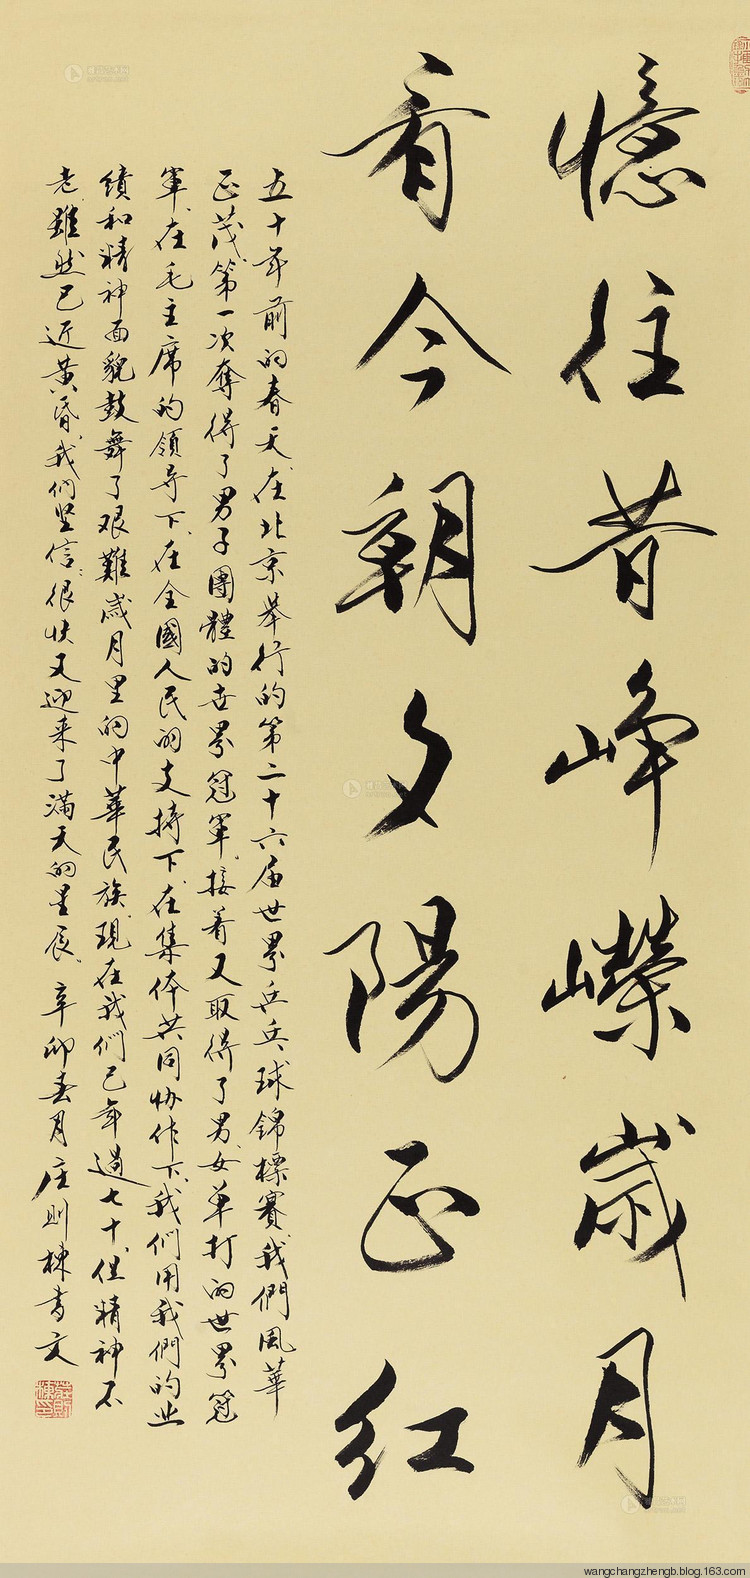 憶往昔峥嶸歲月
看今朝夕陽正紅
五十年前的春天在北京举行的第二十六届世界乒乓球錦標賽我們風華
正茂第一次奪得了男子團體的世界冠軍接着又取得了男女单打的世界冠
軍在毛主席的領导下在全國人民的支持下在集体共同协作下我們用我們的业
績和精神面貌鼓舞了艰難歲月里的中華民族現在我們已年過七十但精神不
老雖然已近黄昏我们坚信很快又迎来了满天的星辰辛卯春月庄则棟书文
庄则棟印
wangchangzhengb.blog.163.com